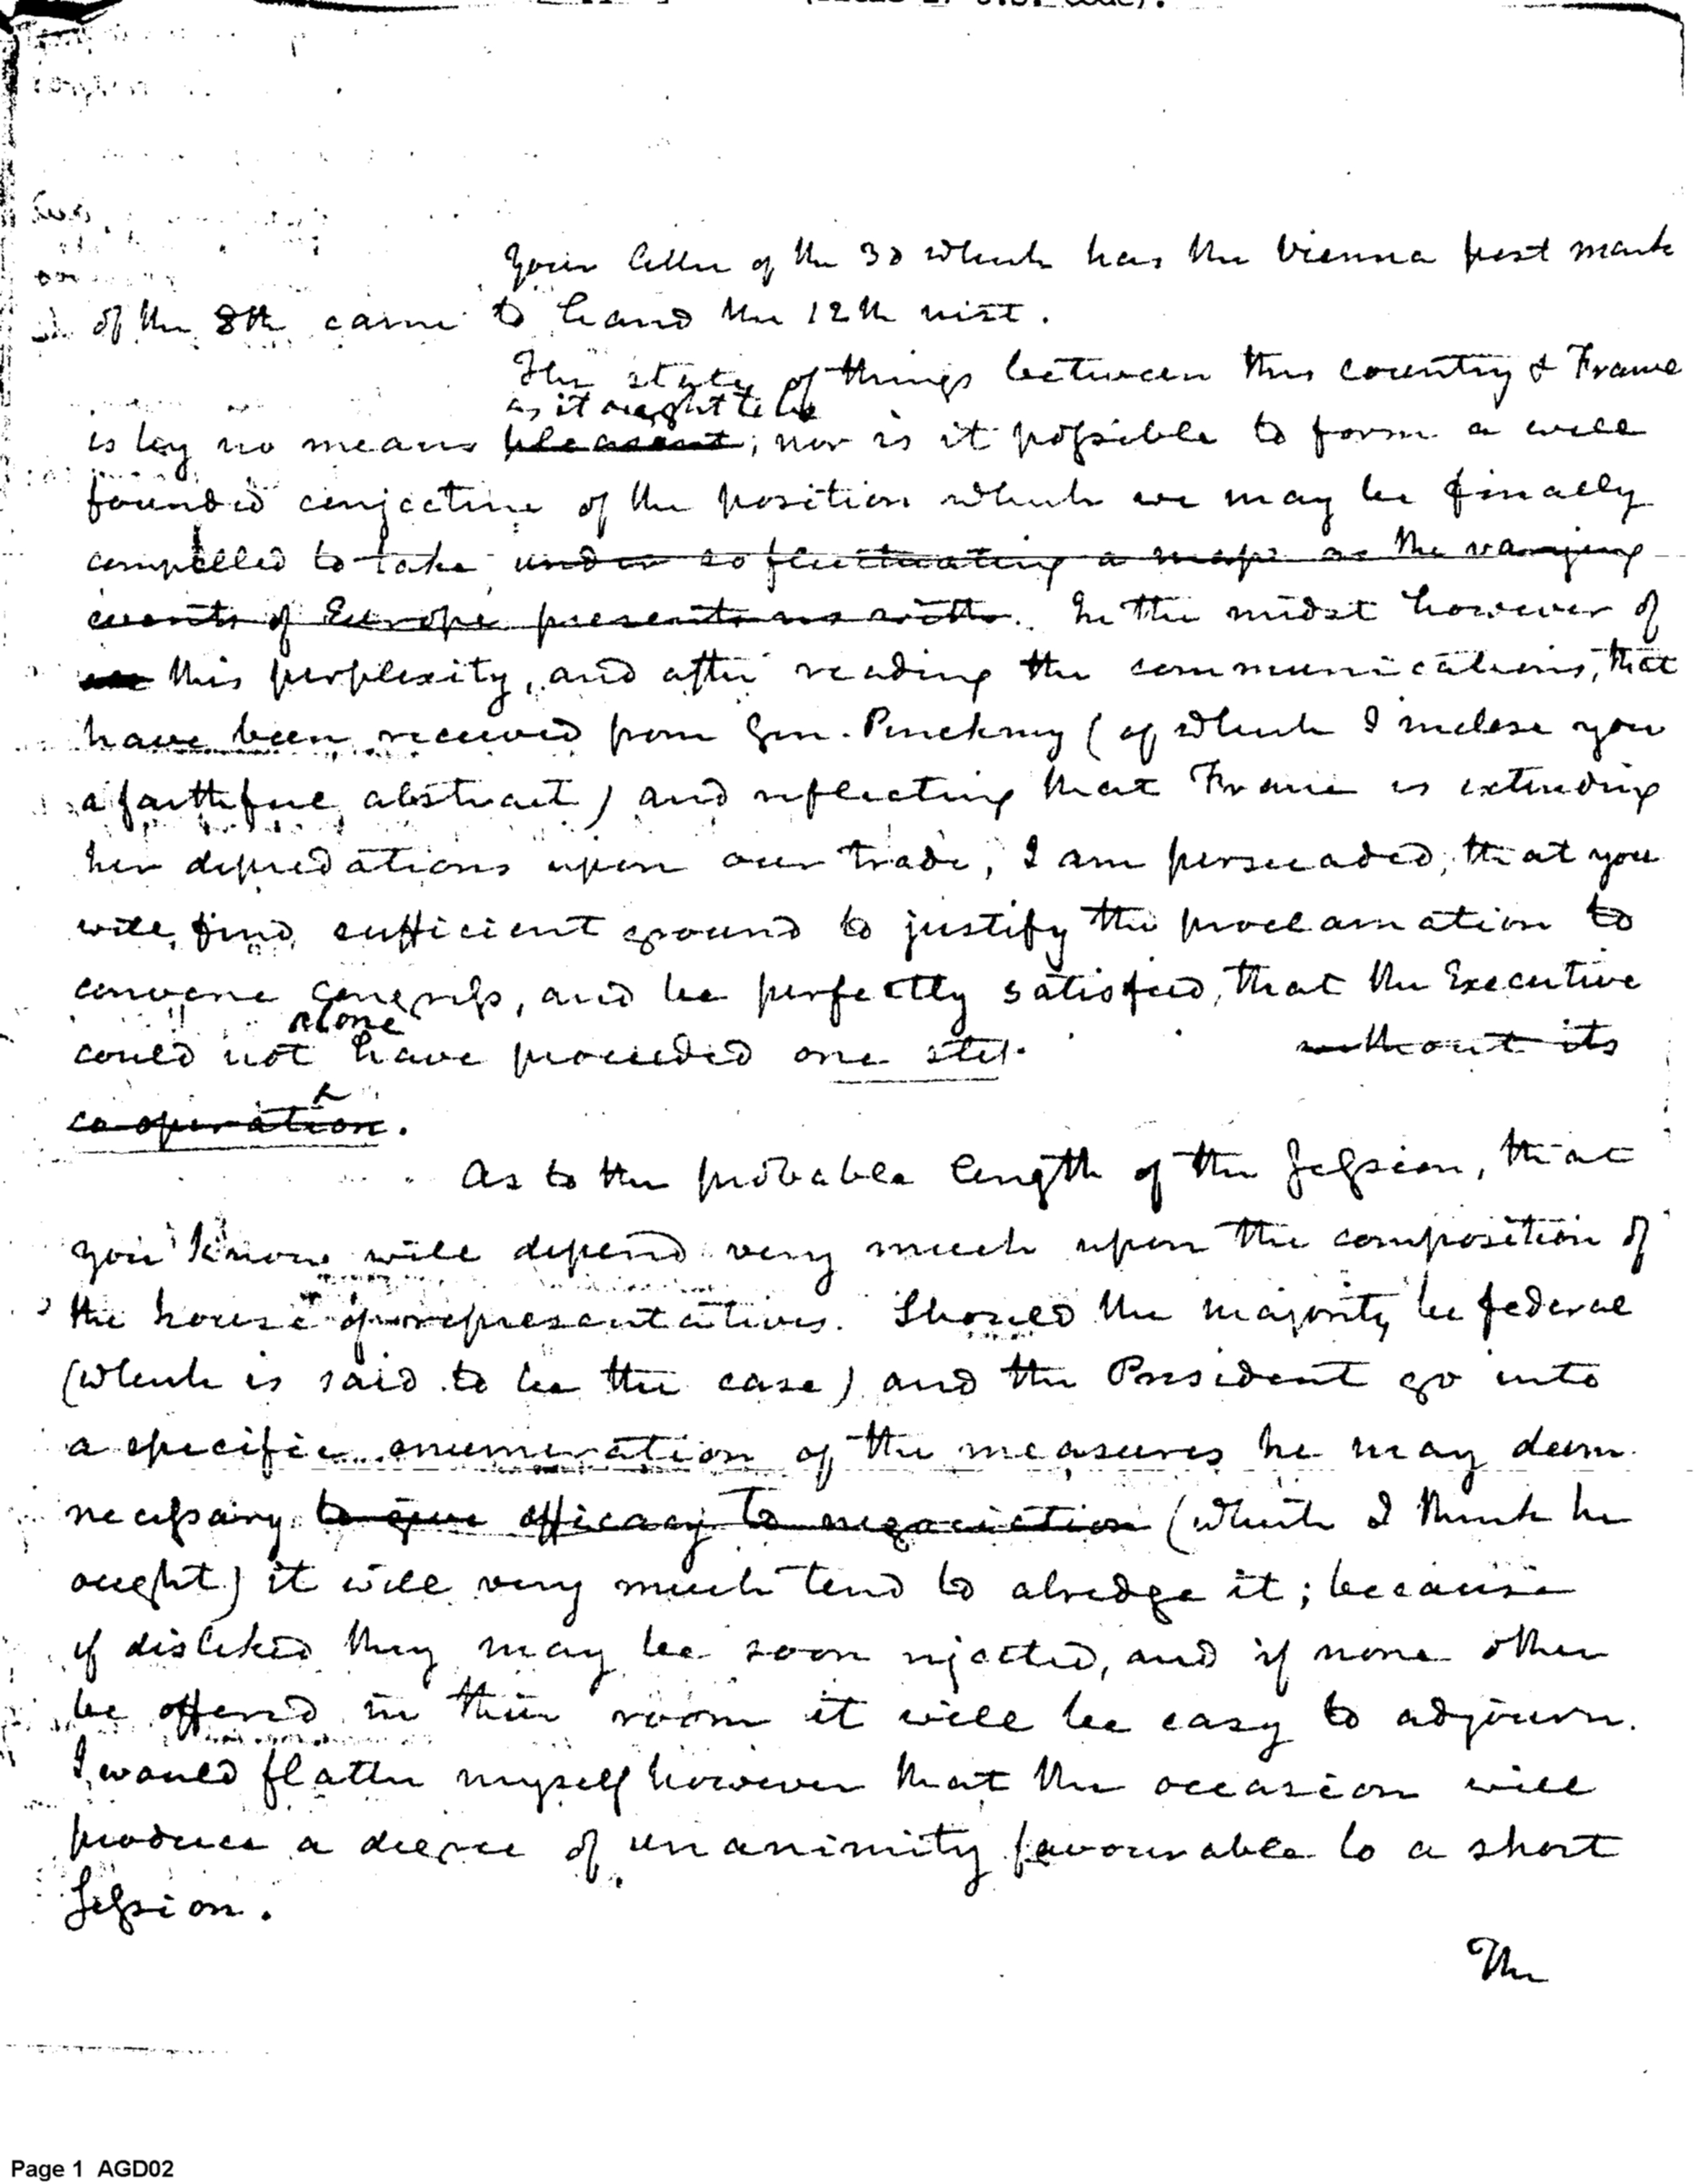 (Title 17 U.S. Code).
Your letter of the 3d which has the Vienna post mark
of the 8th came to hand the 12th inst.
The state of things between this country & France
as it ought to be
is by no means pleasant; nor is it possible to form a well
founded conjecture of the position which we may be finally
compelled to take under so fluctuating a maps as the varying
events of Europe presents us with. In the midst however of
this perplexity, and after reading the communications, that
have been received from Gen. Pinckney (of which I inclose you
a faithful abstract) and reflecting that France is extending
her depredations upon our trade, I am persuaded, that you
will find sufficient ground to justify the proclamation to
convene Congress, and be perfectly satisfied, that the Executive
alone
could not have proceeded one step. without its
co operation.
As to the probable length of the Session, that
you know will depend very much upon the composition of
the house of representatives. Should the majority be federal
(which is said to be the case) and the President go into
a specific enumeration of the measures he may deem
necessary to give efficacy to negociation (which I think he
ought) it will very much tend to abredge it; because
if disliked they may be soon rejected, and if none other
be offered in their room it will be easy to adjourn.
I would flatter myself however that the occasion will
produce a degree of unanimity favourable to a short
Session.
The
Page 1 AGD02